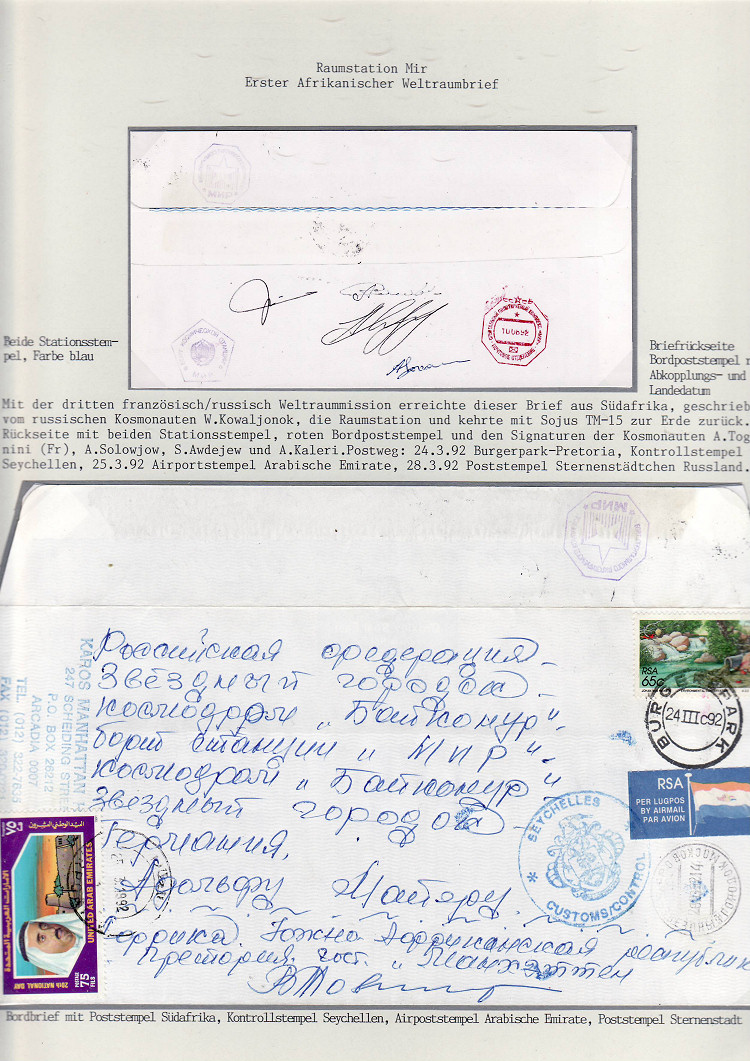 Raumstation Mir
Erster Afrikanischer Weltraumbrief
МИР
Beide Stationsstem-
pel, Farbe blau
10.08.92
Briefrückseite
Bordpoststempel
Abkopplungs- und
Landedatum
Mit der dritten französisch/russisch Weltraummission erreichte dieser Brief aus Südafrika, geschrieb
vom russischen Kosmonauten W.Kowaljonok, die Raumstation und kehrte mit Sojus TM-15 zur Erde zurück.
Rückseite mit beiden Stationsstempel, roten Bordpoststempel und den Signaturen der Kosmonauten A.Tog
nini (Fr), A.Solowjow, S.Awdejew und A.Kaleri.Postweg: 24.3.92 Burgerpark-Pretoria, Kontrollstempel
Seychellen, 25.3.92 Airportstempel Arabische Emirate, 28.3.92 Poststempel Sternenstädtchen Russland.
МИР
KAROS MANHATTAN
247 SCHEIDING STR
P.O. BOX 26212
ARCADIA 0007
TEL. (012) 322-7635
FAX (012)
Российская федерация
Звёздный городок
космодром „Байконур"
борт станции „Мир".
космодром „Байконур"
Звездный городок
Германия,
Адольфу
Африка. Южно Африканская республика
Претория гост. „Манхэттен
RSA
65c
BURGERPARK
24 III 92
RSA
PER LUGPOS
BY AIRMAIL
PAR AVION
SEYCHELLES
CUSTOMS/CONTROL
UNITED ARAB EMIRATES
الإمارات العربية المتحدة
العيد الوطني العشرين
20th NATIONAL DAY
75
FILS
Bordbrief mit Poststempel Südafrika, Kontrollstempel Seychellen, Airpoststempel Arabische Emirate, Poststempel Sternenstadt